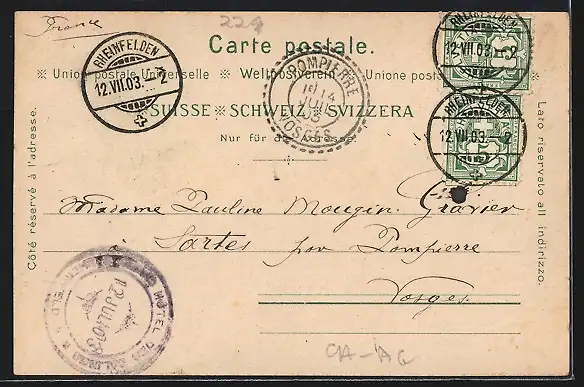 France
224
Carte postale.
※ Union postale Universelle ※ Weltpostverein ※ Unione postale
SUISSE ※ SCHWEIZ ※ SVIZZERA
Nur für die Adresse.
Côté réservé à l'adresse.
Lato riservato all indirizzo.
RHEINFELDEN
12.VII.03.–2
POMPIERRE
14
JUIL
03
VOSGES
RHEINFELDEN
12.VII.03.–2
RHEINFELDEN
12.VII.03.–2
Madame Pauline Mougin-Gravier
à Sartes par Pompierre
Vosges
HOTEL DES SALINES
12 JUL 1903
CA-AG